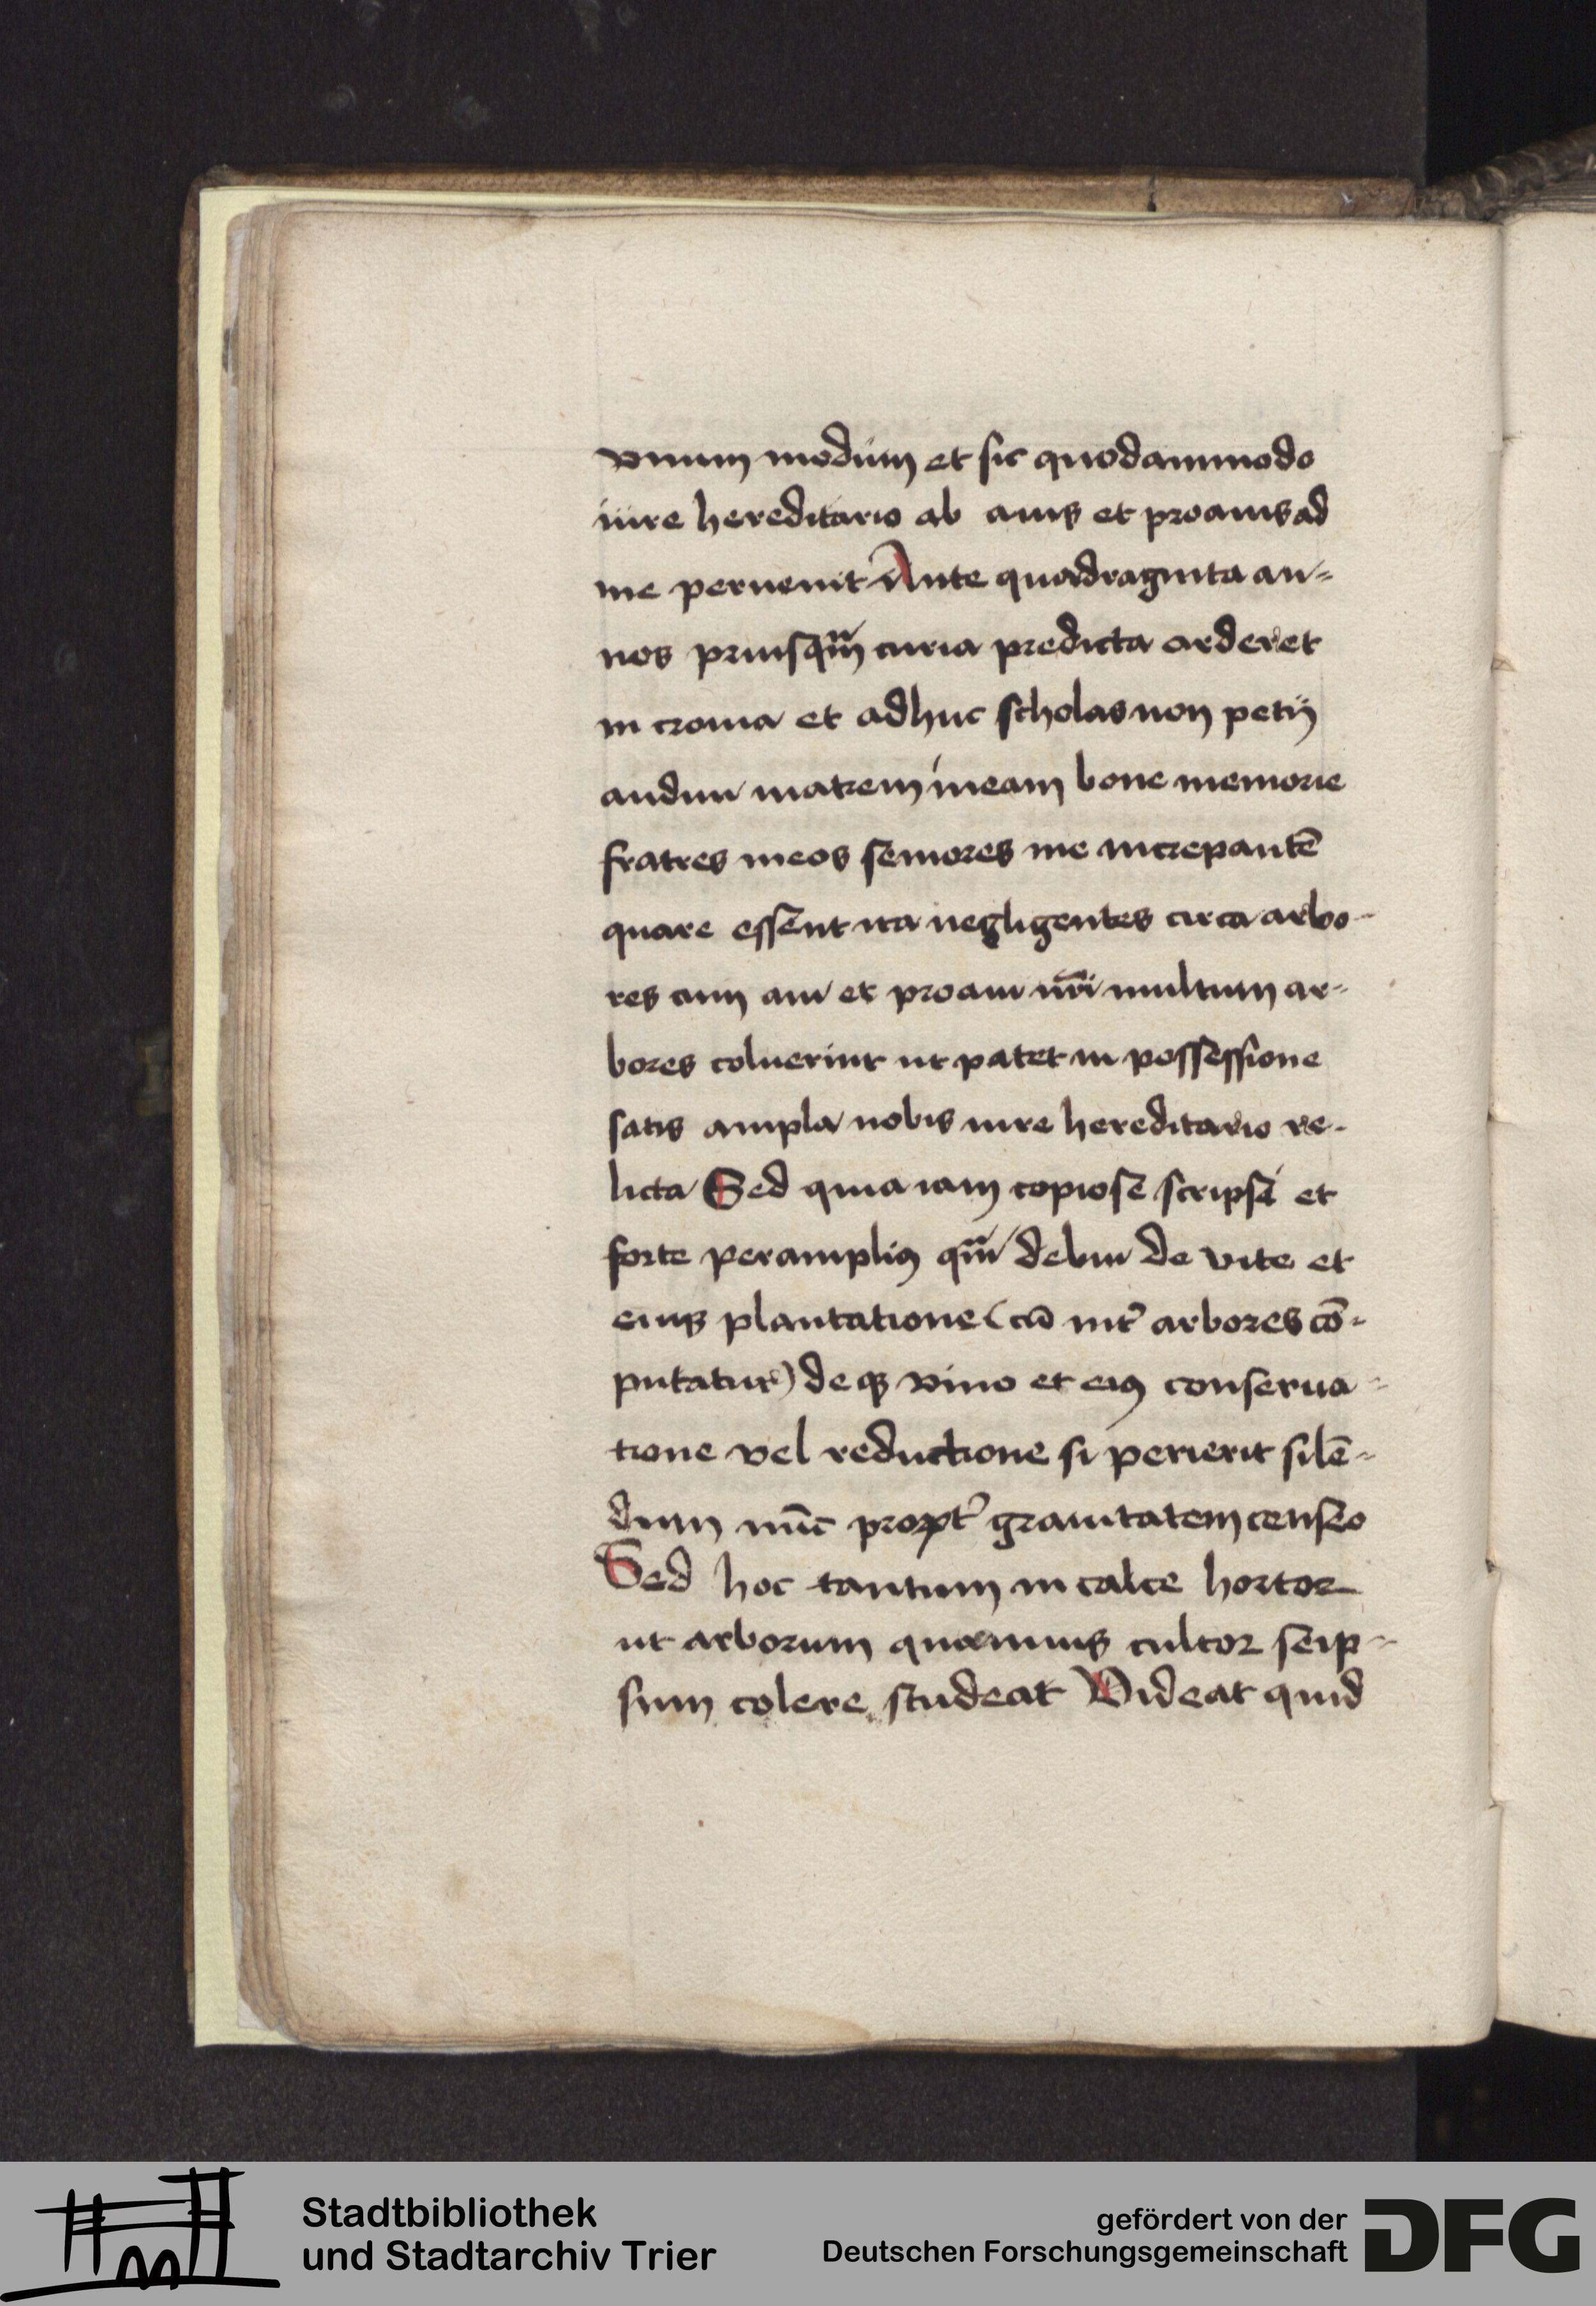 vnum modum et sic quodammodo
iure hereditario ab auis et proauis ad
me peruenit Ante quadraginta an=
nos priusqm̄ curia predicta arderet
in croua et adhuc scholas non petij
audiui matrem meam bone memorie
fratres meos seniores me increpantē
quare essent ita negligentes circa arbo-
res cum aui et proaui nr̄i multum ar-
bores coluerint ut patet in possessione
satis ampla nobis iure hereditario re-
licta Sed quia iam copiose scripsi et
forte perampliꝰ qm̄ debui de vite et
eius plantatione (cū int̄ arbores cō-
putatur) deqꝫ vino et eiꝰ conserua-
tione vel reductione si perierit silē-
dum nūc propt̄ grauitatem censeo
Sed hoc tantum in calce hortor
ut arborum quamuis cultor seip-
sum colere studeat Videat quid
Stadtbibliothek
und Stadtarchiv Trier
gefördert von der
Deutschen Forschungsgemeinschaft
DFG